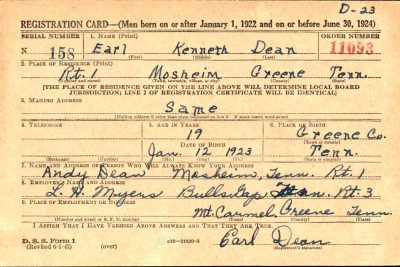 D-23
REGISTRATION CARD—(Men born on or after January 1, 1922 and on or before June 30, 1924)
SERIAL NUMBER 1. NAME (Print) ORDER NUMBER
N 158 Earl Kenneth Dean 11093
(First) (Middle) (Last)
2. PLACE OF RESIDENCE (Print)
Rt. 1 Mosheim Greene Tenn.
(Number and street) (Town, township, village, or city) (County) (State)
[THE PLACE OF RESIDENCE GIVEN ON THE LINE ABOVE WILL DETERMINE LOCAL BOARD
JURISDICTION; LINE 2 OF REGISTRATION CERTIFICATE WILL BE IDENTICAL]
3. MAILING ADDRESS
Same
[Mailing address if other than place indicated on line 2. If same insert word same]
4. TELEPHONE 5. AGE IN YEARS 6. PLACE OF BIRTH
19 Greene Co.
DATE OF BIRTH (Town or county)
Jan. 12 1923 Tenn.
(Exchange) (Number) (Mo.) (Day) (Yr.) (State or country)
7. NAME AND ADDRESS OF PERSON WHO WILL ALWAYS KNOW YOUR ADDRESS
Andy Dean Mosheim, Tenn. Rt. 1
8. EMPLOYER'S NAME AND ADDRESS
Myers Bulls Gap Rt. 3
9. PLACE OF EMPLOYMENT OR BUSINESS
Mt. Carmel, Greene Tenn.
(Number and street or R. F. D. number) (Town) (County) (State)
I AFFIRM THAT I HAVE VERIFIED ABOVE ANSWERS AND THAT THEY ARE TRUE.
D. S. S. Form 1
(Revised 6-1-42) (over) Earl Dean